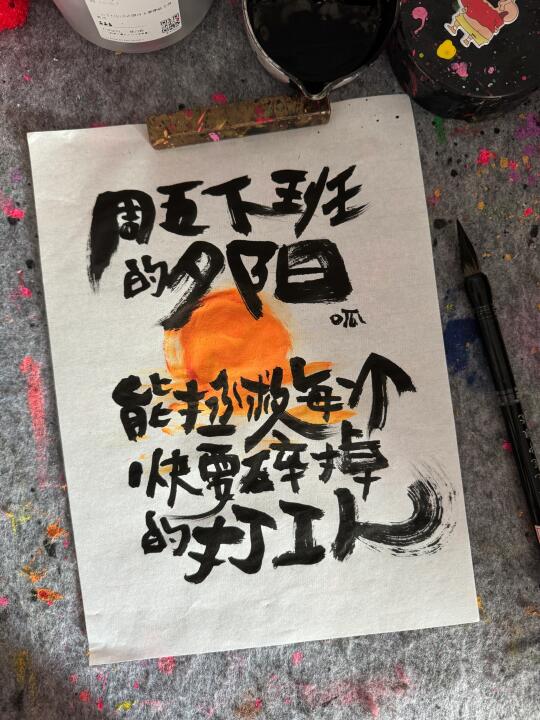 周五下班
的夕阳
呱
能拯救每个
快要碎掉
的打工人